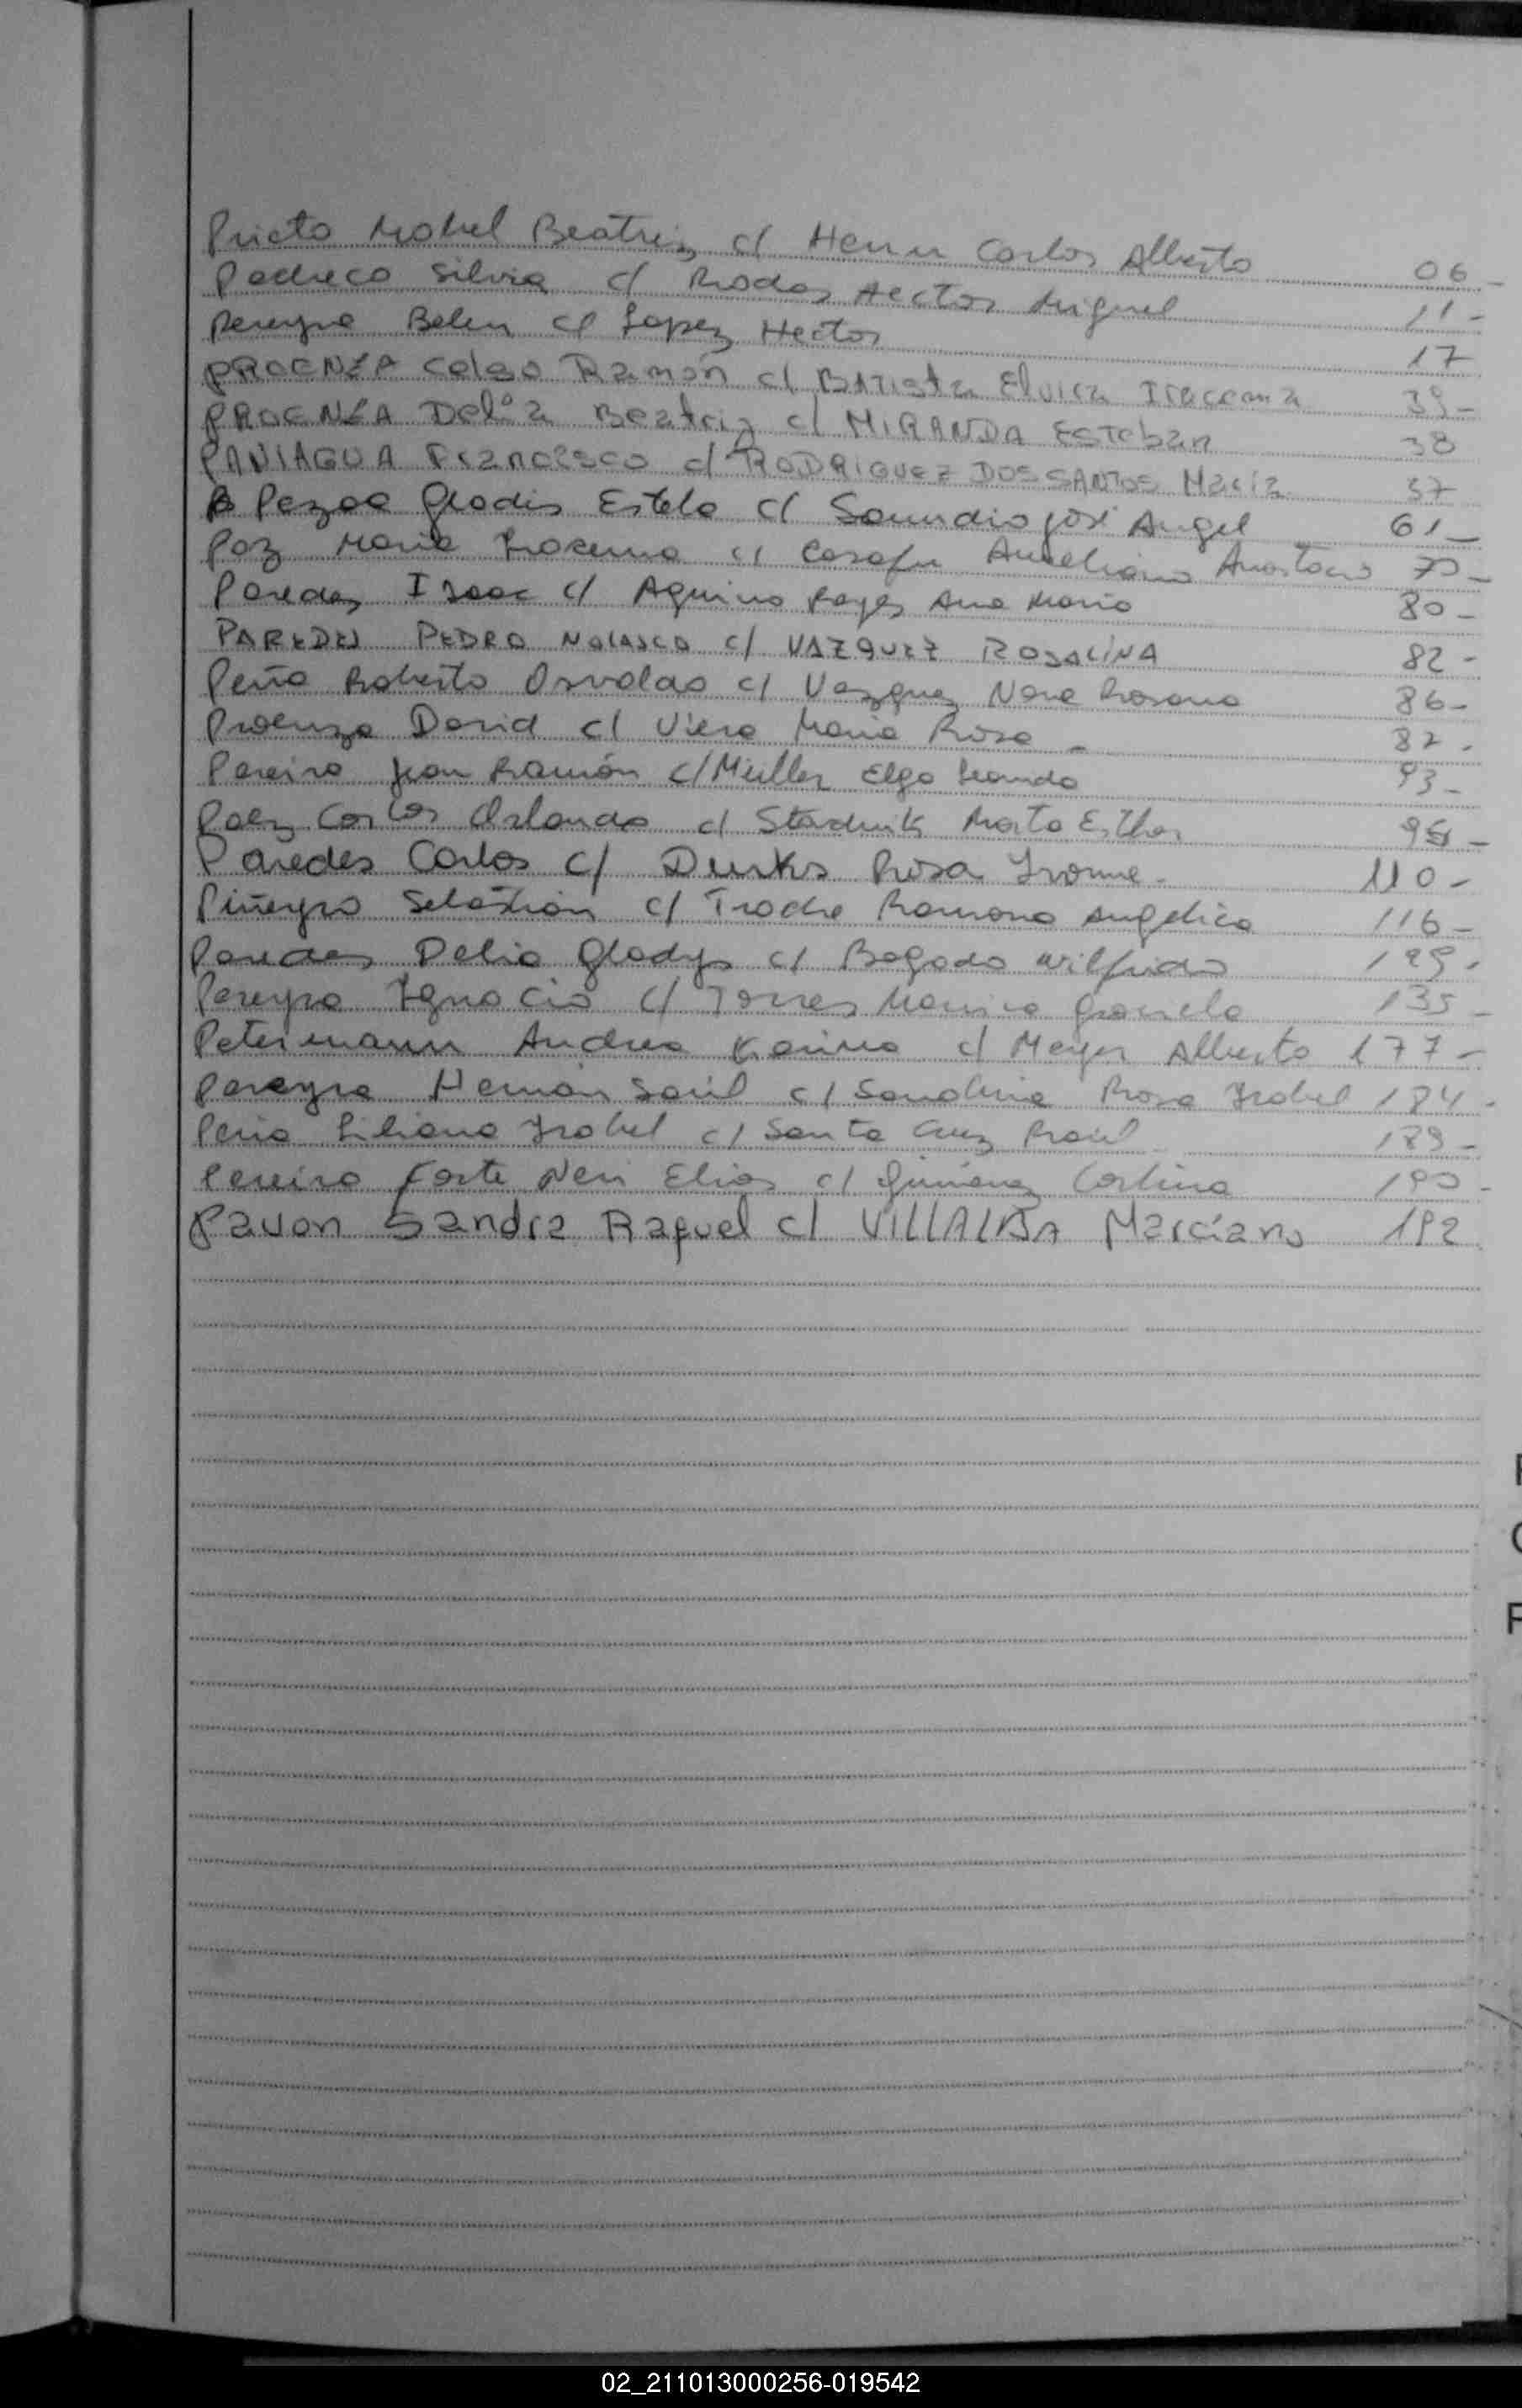 Prieto Mabel Beatriz c/ Henn Carlos Alberto 06 -
Pacheco Silvia c/ Rodas Hector Miguel 11 -
Pereyra Belen c/ Lopez Hector 17
PROENÉA Celso Ramón c/ BATista Elvira Iracema 39 -
PROENÉA Delia Beatriz c/ MIRANDA ESTeban 38
PANIAGUA Francisco c/ RODRIGUEZ DOS SANTOS Maria 37
Pezoa Gladis Estela c/ José Angel 61 -
Paz Maria c/ Aureliano Anastacio
Paredes Isaac c/ Aquino Ana Maria 80 -
PAREDES PEDRO NOLASCO c/ VAZQUEZ ROSALINA 82 -
Peña Roberto Osvaldo c/ Vazquez Rosana 86 -
Proenza David c/ Viera Maria Rosa - 87 -
Pereira Juan Ramón c/ Muller 93 -
Paez Carlos Orlando c/ Stasiuk Marta Esther
Paredes Carlos c/ Rosa Ivonne - 110 -
Piñeyro Sebastian c/ Troche Ramona Angelica 116 -
Paredes Delia Gladys c/ Bogado Wilfrido
Pereyra Ignacio c/ Torres Monica Graciela 135 -
Petermann Andrea Karina c/ Meyer Alberto 177 -
Pereyra Hernán Saúl c/ Rosa Isabel 184 -
Peña Liliana Isabel c/ Santa Cruz Raúl 189 -
Pereira Forte Neri Elias c/ Gimenez 190 -
Pavon Sandra Raquel c/ VILLALBA Marciano 192
02_211013000256-019542